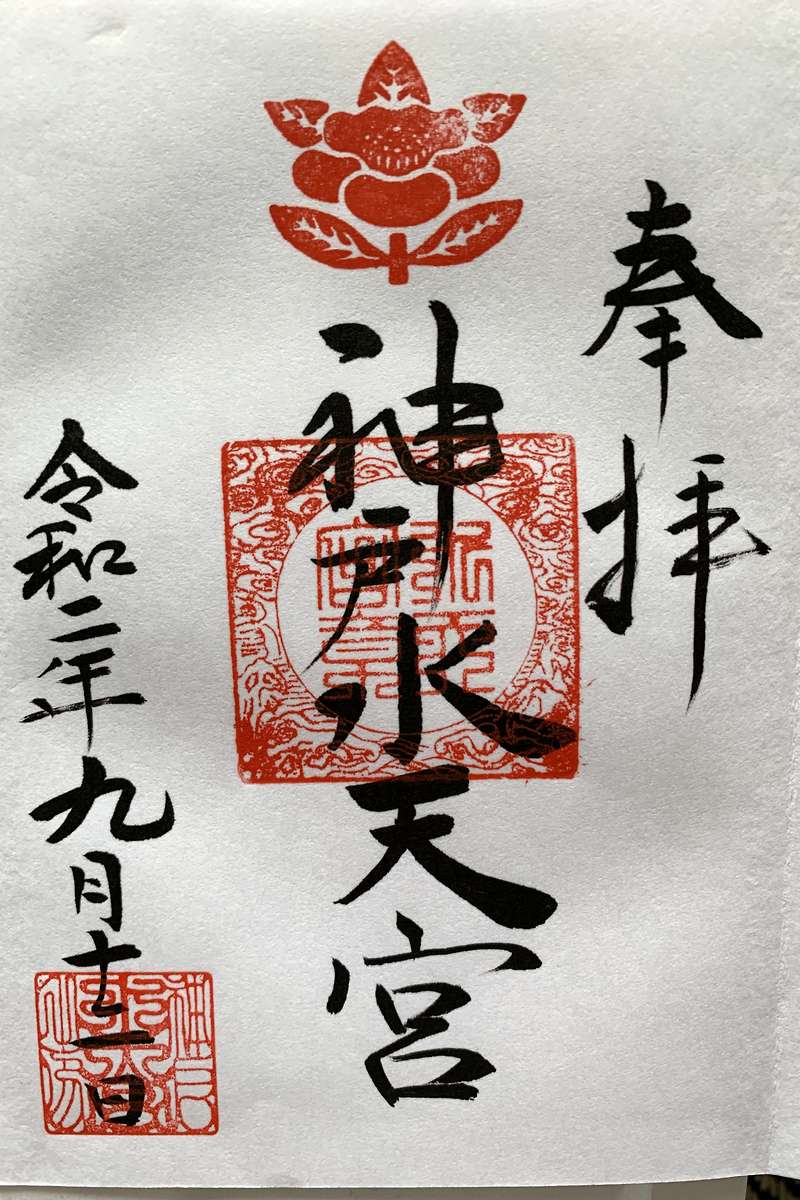 奉拝
神戸水天宮
令和二年九月十二日